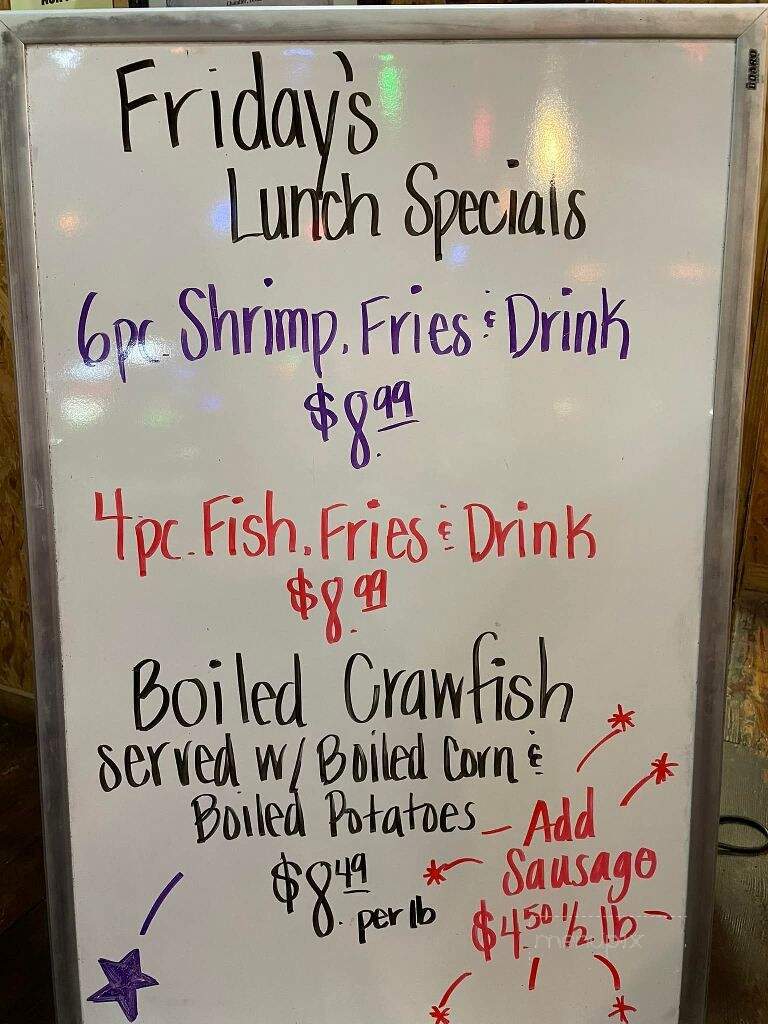 Friday's
Lunch Specials
6pc. Shrimp, Fries & Drink
$8.99
4pc. Fish, Fries & Drink
$8.99
Boiled Crawfish
served w/ Boiled Corn &
Boiled Potatoes - Add
Sausage
$8.49 per lb
$4.50 1/2 lb
menupix
BOARD